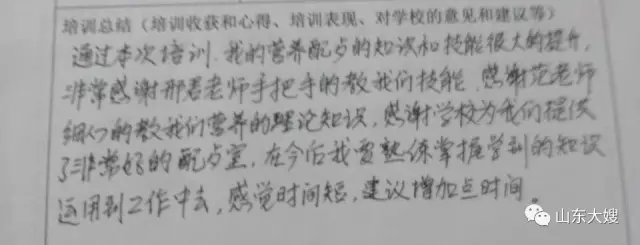 培训总结（培训收获和心得、培训表现、对学校的意见和建议等）
通过本次培训.我的营养配点的知识和技能很大的提升,
非常感谢邢君老师手把手的教我们技能.感谢范老师
细心的教我们营养的理论知识,感谢学校为我们提供
了非常好的配点室,在今后我要熟练掌握学到的知识
运用到工作中去,感觉时间短,建议增加点时间。
山东大嫂